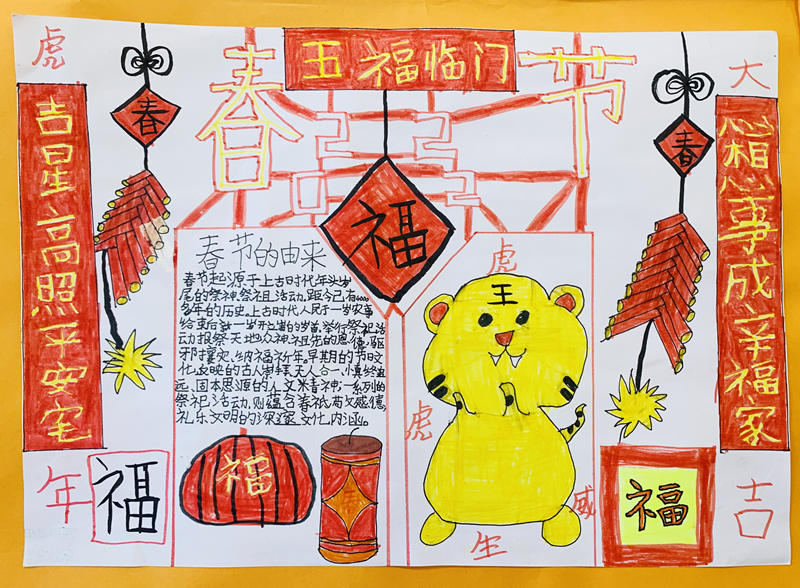 虎
春
五福临门
节
大
吉星高照平安宅
春
福
春
心想事成幸福家
春节的由来
春节起源于上古时代年头岁
尾的祭神祭祖活动.距今已有4000
多年的历史上古时代人民于一岁农事
后新一岁开始的岁首,举行祭祀活
动报祭天地众神、祖先的恩德,驱
邪攘灾、纳福祈年。早期的节日文
化反映的古人天人合一,慎终追
远、固本思源的人文精神;一系列的
祭祀活动,则蕴含着祇文感德,
礼乐文明的深邃文化内涵。
虎
王
虎
威
生
福
年
福
福
吉